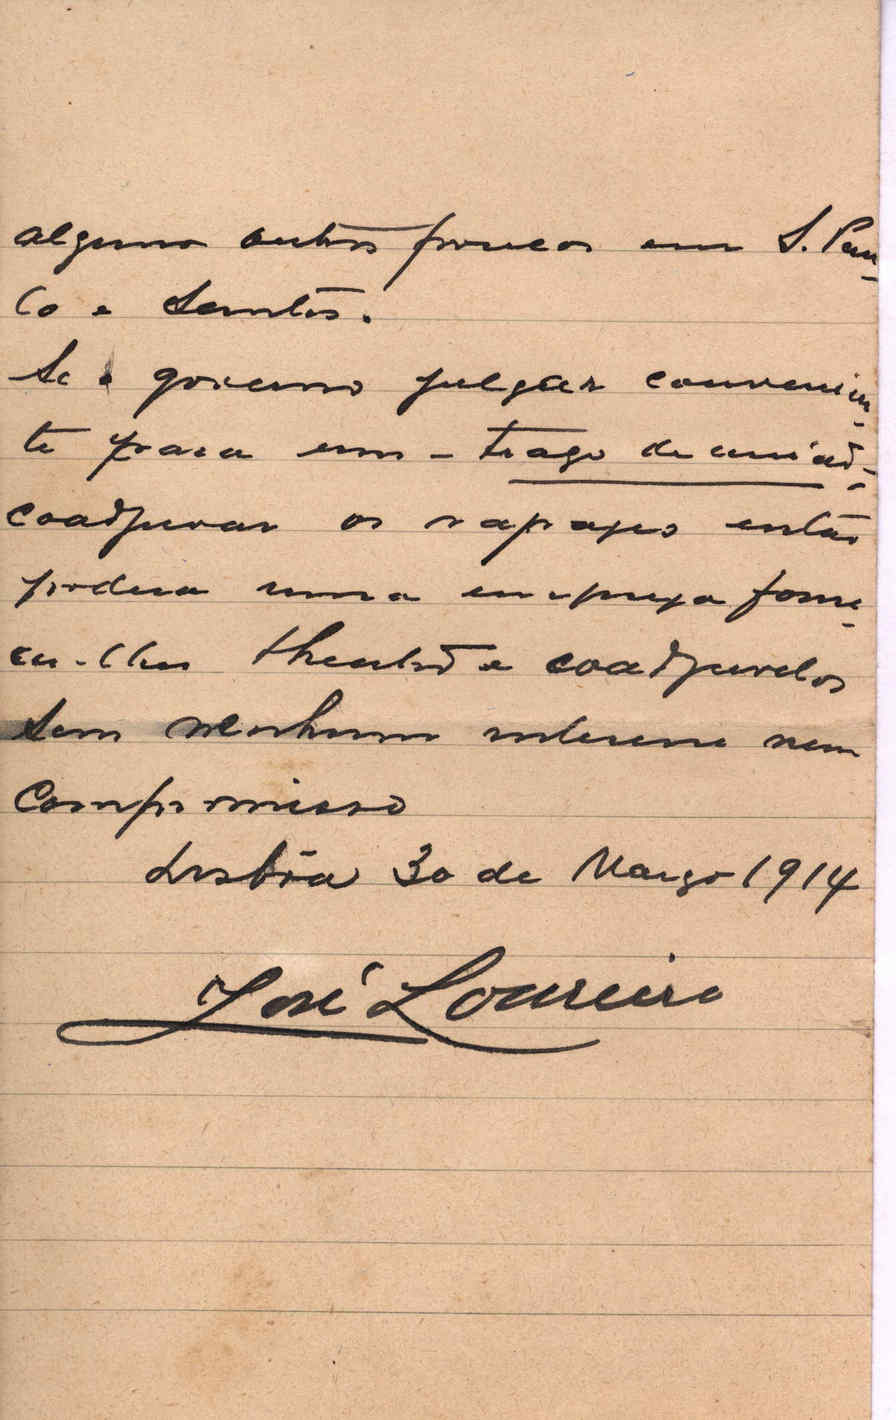 alguns outros poucos em S. Pau-
lo e Santos.
Se o governo julgar convenien-
te para um - traço de união -
coadjuvar os rapazes então
podera uma empreza forne-
cer-lhes theatro e coadjuvalos
sem nenhum interesse nem
compromisso
Lisbôa 30 de Março 1914
José Loureiro